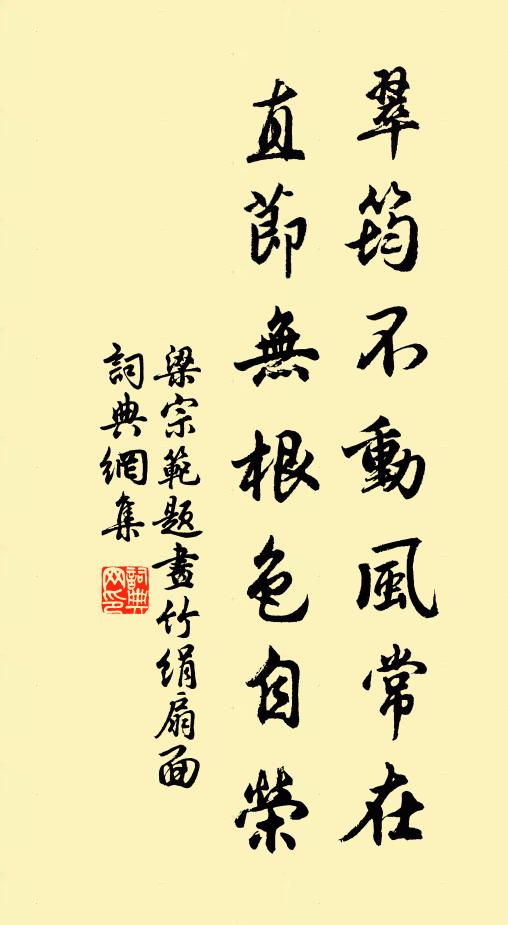 翠筠不動風常在
直節無根色自榮
梁宗範題畫竹絹扇面
詞典網集
詞典网印